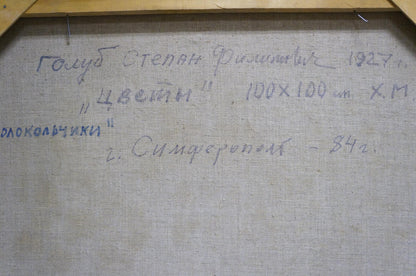 Голуб Степан Филиппович 1927 г.
„Цветы" 100Х100 см Х.М
олокольчики"
г. Симферополь - 84 г.